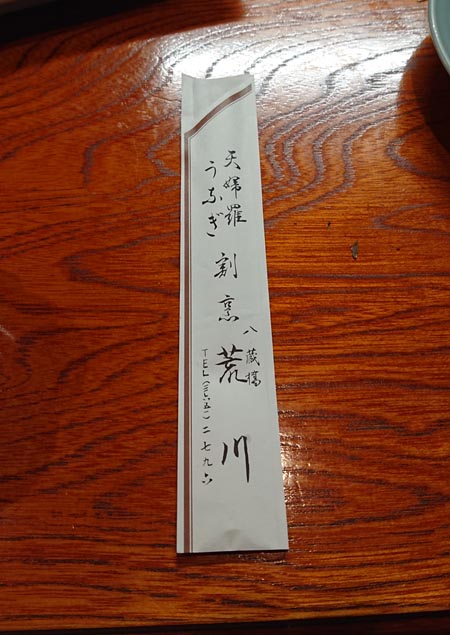 天婦羅
うなぎ
割烹
八蔵橋
荒川
TEL(三六五一)二七九六